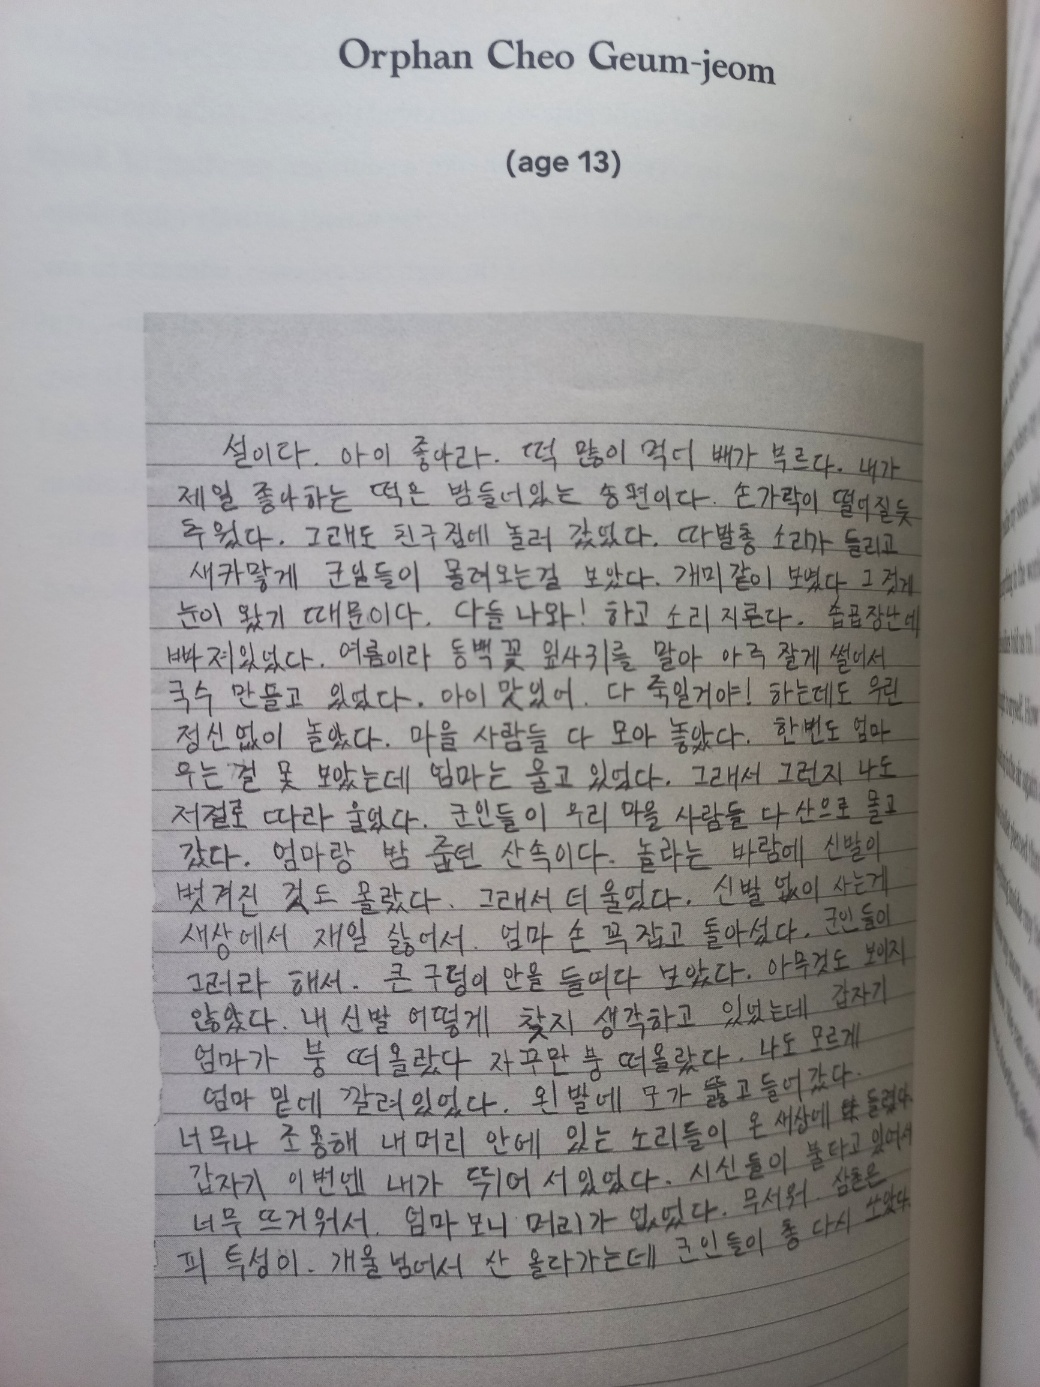 Orphan Cheo Geum-jeom
(age 13)
설이다. 아이 좋아라. 떡 많이 먹더 배가 부르다. 내가
제일 좋아하는 떡은 밤들어있는 송편이다. 손가락이 떨어질듯
추웠다. 그래도 친구집에 놀러 갔었다. 따발총 소리가 들리고
새카맣게 군인들이 몰려오는걸 보았다. 개미같이 보였다 그렇게
눈이 왔기 때문이다. 다들 나와! 하고 소리 지른다. 솝곱장난에
빠져있었다. 여름이라 동백꽃 잎사귀를 말아 아주 잘게 썰어서
국수 만들고 있었다. 아이 맛있어. 다 죽일거야! 하는데도 우린
정신없이 놀았다. 마을 사람들 다 모아 놓았다. 한번도 엄마
우는걸 못 보았는데 엄마는 울고 있었다. 그래서 그런지 나도
저절로 따라 울었다. 군인들이 우리 마을 사람들 다 산으로 몰고
갔다. 엄마랑 밤 줍던 산속이다. 놀라는 바람에 신발이
벗겨진 것도 몰랐다. 그래서 더 울었다. 신발 없이 사는게
새상에서 재일 싫어서. 엄마 손 꼭 잡고 돌아섰다. 군인들이
그러라 해서. 큰 구덩이 안을 들여다 보았다. 아무것도 보이지
않았다. 내 신발 어떻게 찾지 생각하고 있었는데 갑자기
엄마가 붕 떠올랐다 자꾸만 붕 떠올랐다. 나도 모르게
엄마 밑에 깔려있었다. 왼발에 모가 뚫고 들어갔다.
너무나 조용해 내 머리 안에 있는 소리들이 온 새상에 들렸다.
갑자기 이번엔 내가 뛰어 서있었다. 시신들이 불타고 있어서
너무 뜨거워서. 엄마 보니 머리가 없었다. 무서워. 삼촌은
피 투성이. 개울 넘어서 산 올라가는데 군인들이 총 다시 쏘았다.